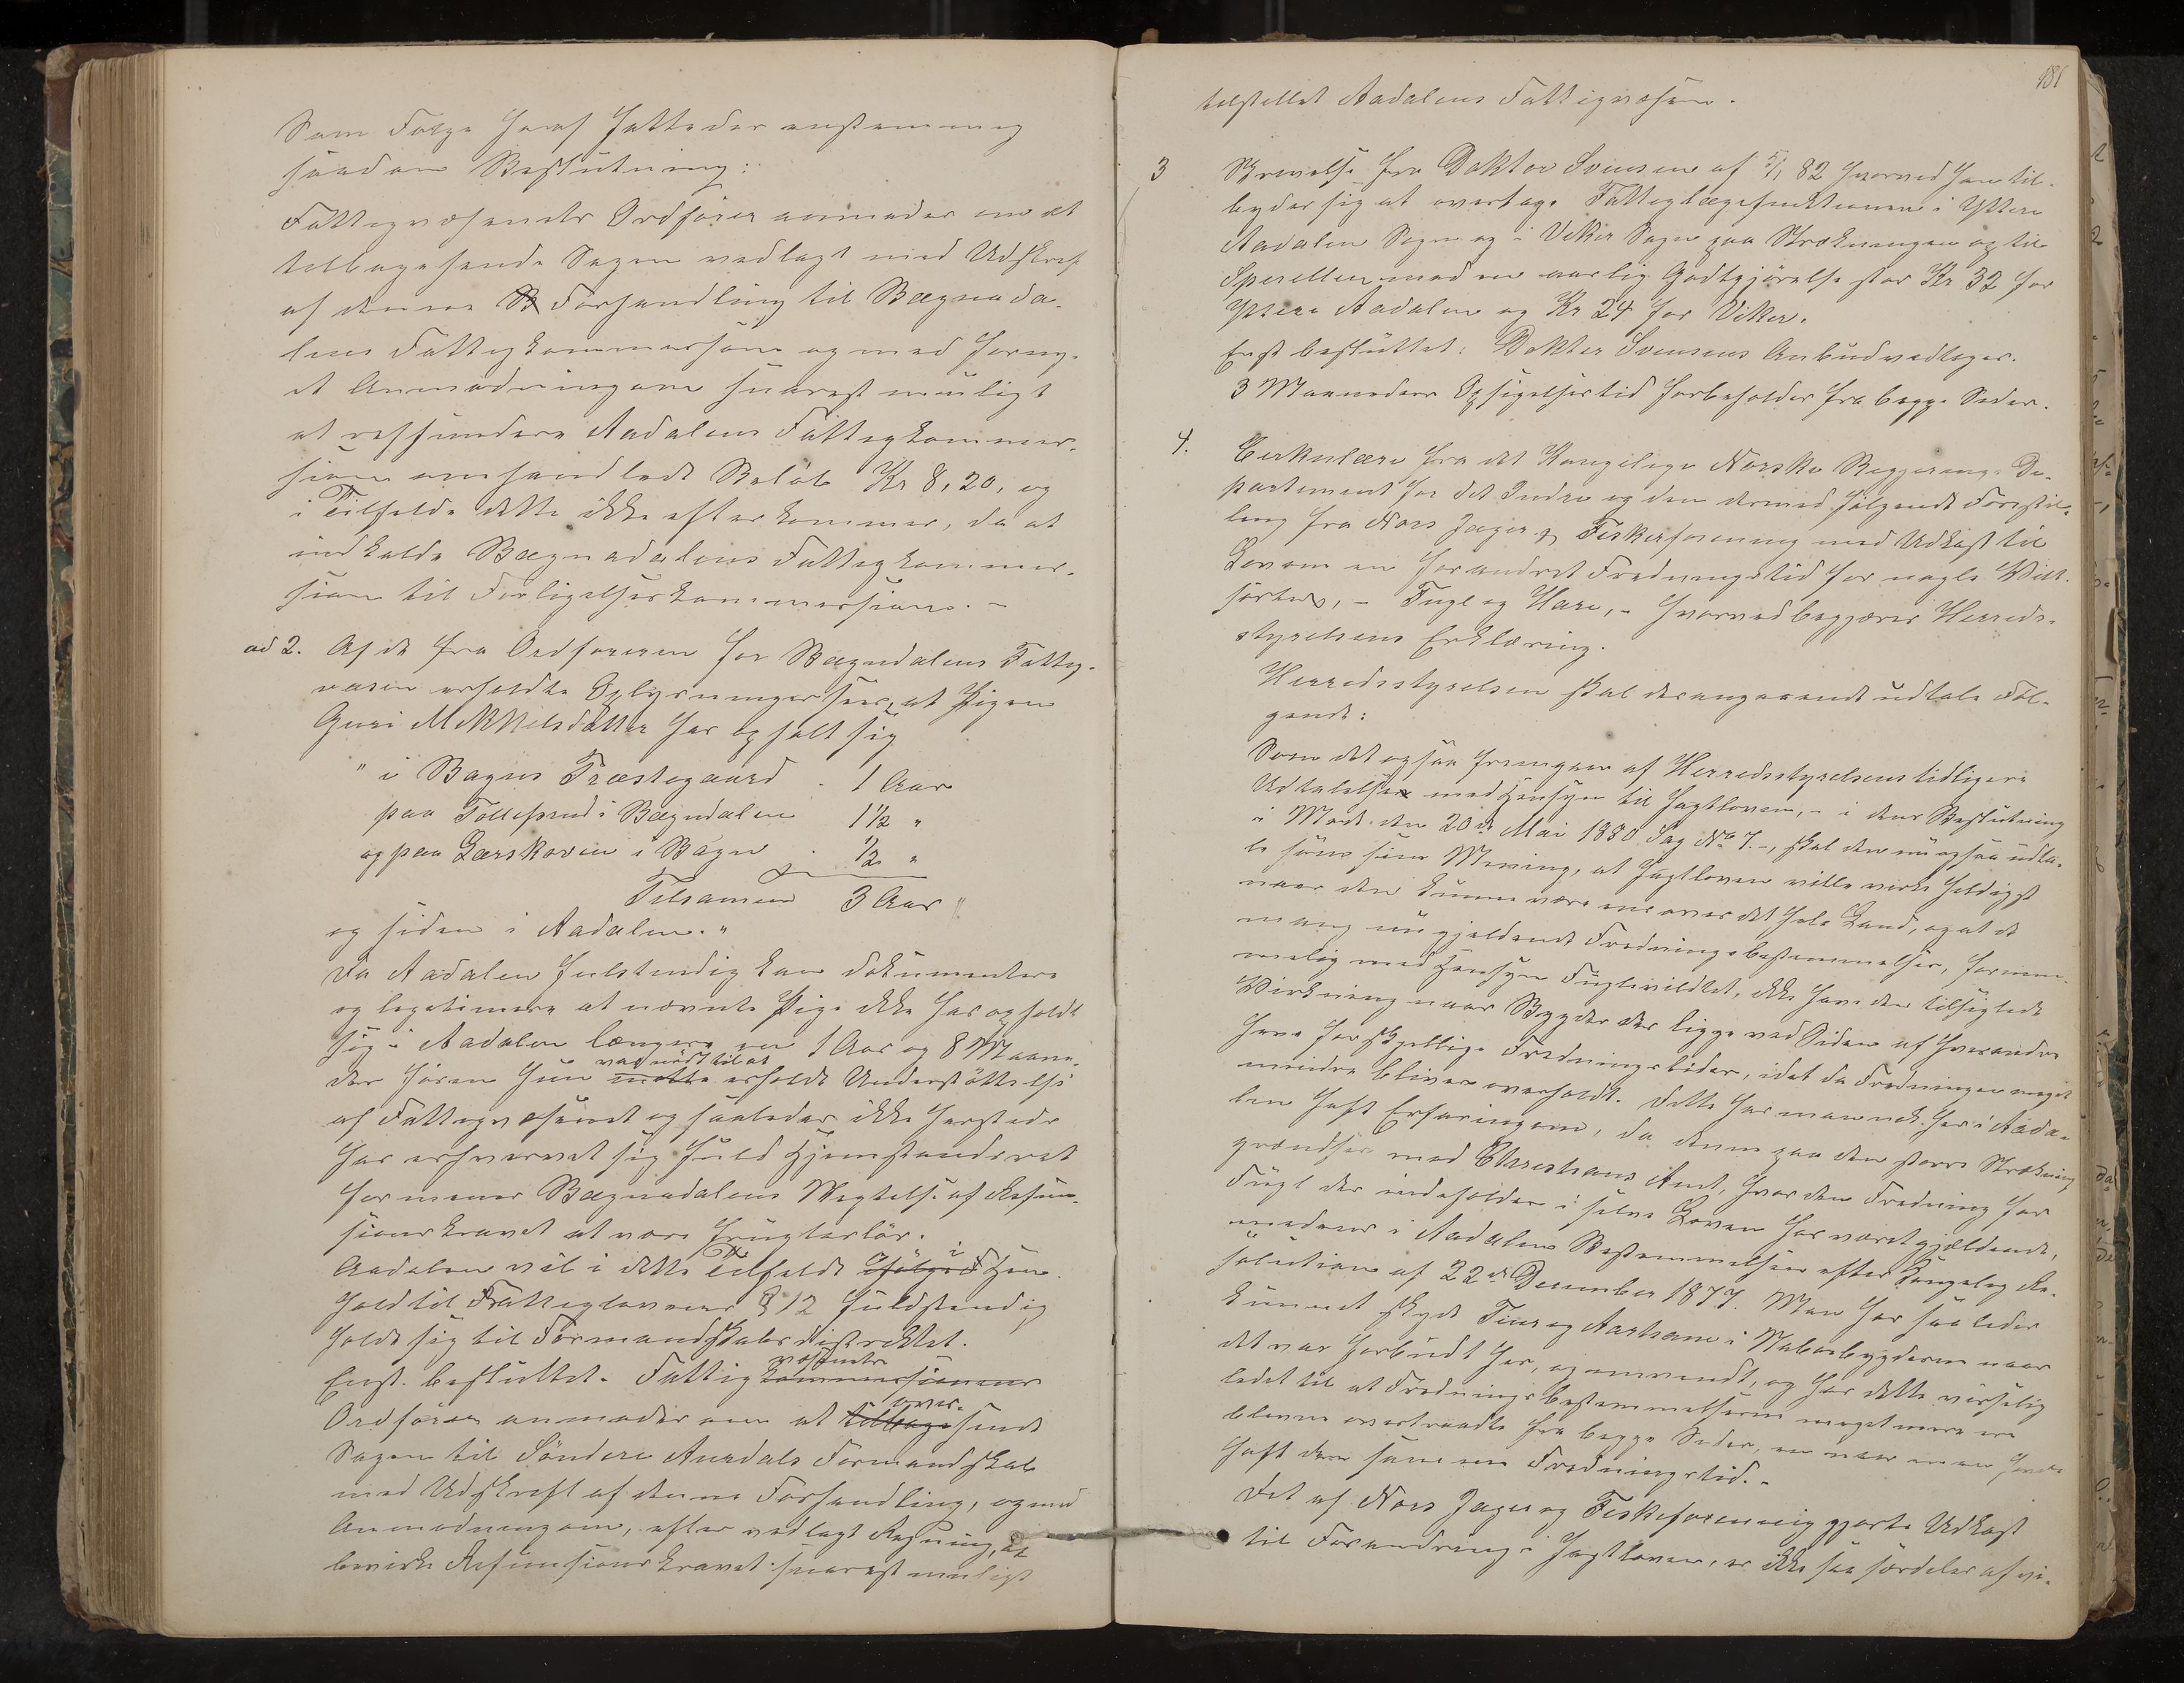 Som Følge heraf fattedes enstemmig
saadan Beslutning:
Fattigvæsenets Ordfører anmodes om at
tilbagesende Sagen vedlagt med Udskrift
af denne Forhandling til Bægnada-
lens Fattigkommission og med forny-
et Anmodning om snarest muligt
at reffundere Aadalens Fattigkommis-
sion omhandlede Beløb Kr 8,20, og
i Tilfælde dette ikke efterkommes, da at
indkalde Bægnadalens Fattigkommis-
sion til Forligelseskommission. -
ad 2. Af de fra Ordføreren for Bægndalens Fattig-
væsen erholdte Oplysninger sees, at Pigen
Guri Mikkelsdatter har opholt sig
" i Bagns Præstegaard - 1 Aar
paa Tollefsrud i Bægndalen 1½ "
og paa Larskovin i Bagn - ½ "
Tilsamen 3 Aar "
og siden i Aadalen. "
Da Aadalen fulstendig kan dokumentere
og legetimere at nævnte Pige ikke har opholdt
sig i Aadalen længere en 1 Aar og 8 Maane-
der føren hun maatte var nødt til at erholde Understøttelse
af Fattigvæsenet og saaledes ikke hersteds
har erhvervet sig fuld Hjemstandsret
formener Bægnadalens Vægtelse af Refun-
sionskravet at være frugtesløs.
Aadalen vil i dette Tilfælde ifølge i Hen-
hold til Fattiglovens § 12 fuldstendig
holde sig til Formandskabsdistriktet.
Enst. besluttet. Fattigkommissionens væsenets
Ordfører anmodes om at tilbage over-sende
Sagen til Søndere Aurdals Formandskab
med Udskrift af denne Forhandling, og med
Anmodning om, efter vedlagt Regning, at
bevirke Refunsionskravet snarest muligt
181
tilstillet Aadalens Fattigvæsen.
3 Skrivelse fra Doktor Svensen af 5/1 82 hvorved han til-
byder sig at overtage Fattiglægefunktionen i Ytre
Aadalen Sogn og i Viker Sogn paa Strækningen op til
Sperellen mod en aarlig Godtgjørelse stor Kr 32 for
Ytre Aadalen og Kr 24 for Viker.
Enst besluttet: Dokter Svensens Anbud vedtages.
3 Maaneders Opsigelsestid forbeholdes fra begge Seder.
4. Cirkulære fra det Kongelige Norske Regjerings De-
partement for det Indre og den dermed følgende Forestil-
ling fra Nors Jæger og Fiskerforening med Udkast til
Lov om en forandret Fredningstid for nogle Vild-
sorter, - Fugl og Hare, - hvorved begjæres Herreds-
styrelsens Erklæring.
Herredsstyrelsen skal desangaaende udtale Føl-
gende:
Som det ogsaa fremgaar af Herredsstyrelsens tidligere
Udtalelse med Hensyn til Jagtloven, - i dens Beslutning
i Møde den 20de Mai 1880 Sag No 7. -, skal den nu ogsaa udta-
le som sin Mening, at Jagtloven ville virke heldigst
naar den kunne være ens over det hele Land, og at de
mang nu gjældende Fredningsbestemmelser, fornem-
melig med Hensyn Fuglevildtet, ikke have den tilsigtede
Virkning naar Bygder der ligge ved Siden af hverandre
have forskjellige Fredningstider, idet da Fredningen meget
mindre bliver overholdt. Dette har man nok her i Aada-
len haft Erfaring om, da denne paa den større Strækning
grændser med Christians Amt, hvor den Fredning for
Fugl der indeholdes i selve Loven har været gjældende,
medens i Aadalen Bestemmelsen efter Kongelig Re-
solution af 22de Desember 1877. Man har saaledes
kunnet skyde Tiur og Aarhane i Nabobygderne naar
det var forbudt her, og omvendt, og har dette virkelig
ledet til at Fredningsbestemmelserne meget mere er
blevne overtraadte fra begge Seder, en naar man havde
haft den samme Fredningstid. -
Det af Nors Jæger og Fiskeforening gjorte Udkast
til Forandring i Jagtloven, er ikke saa særdeles af vi-